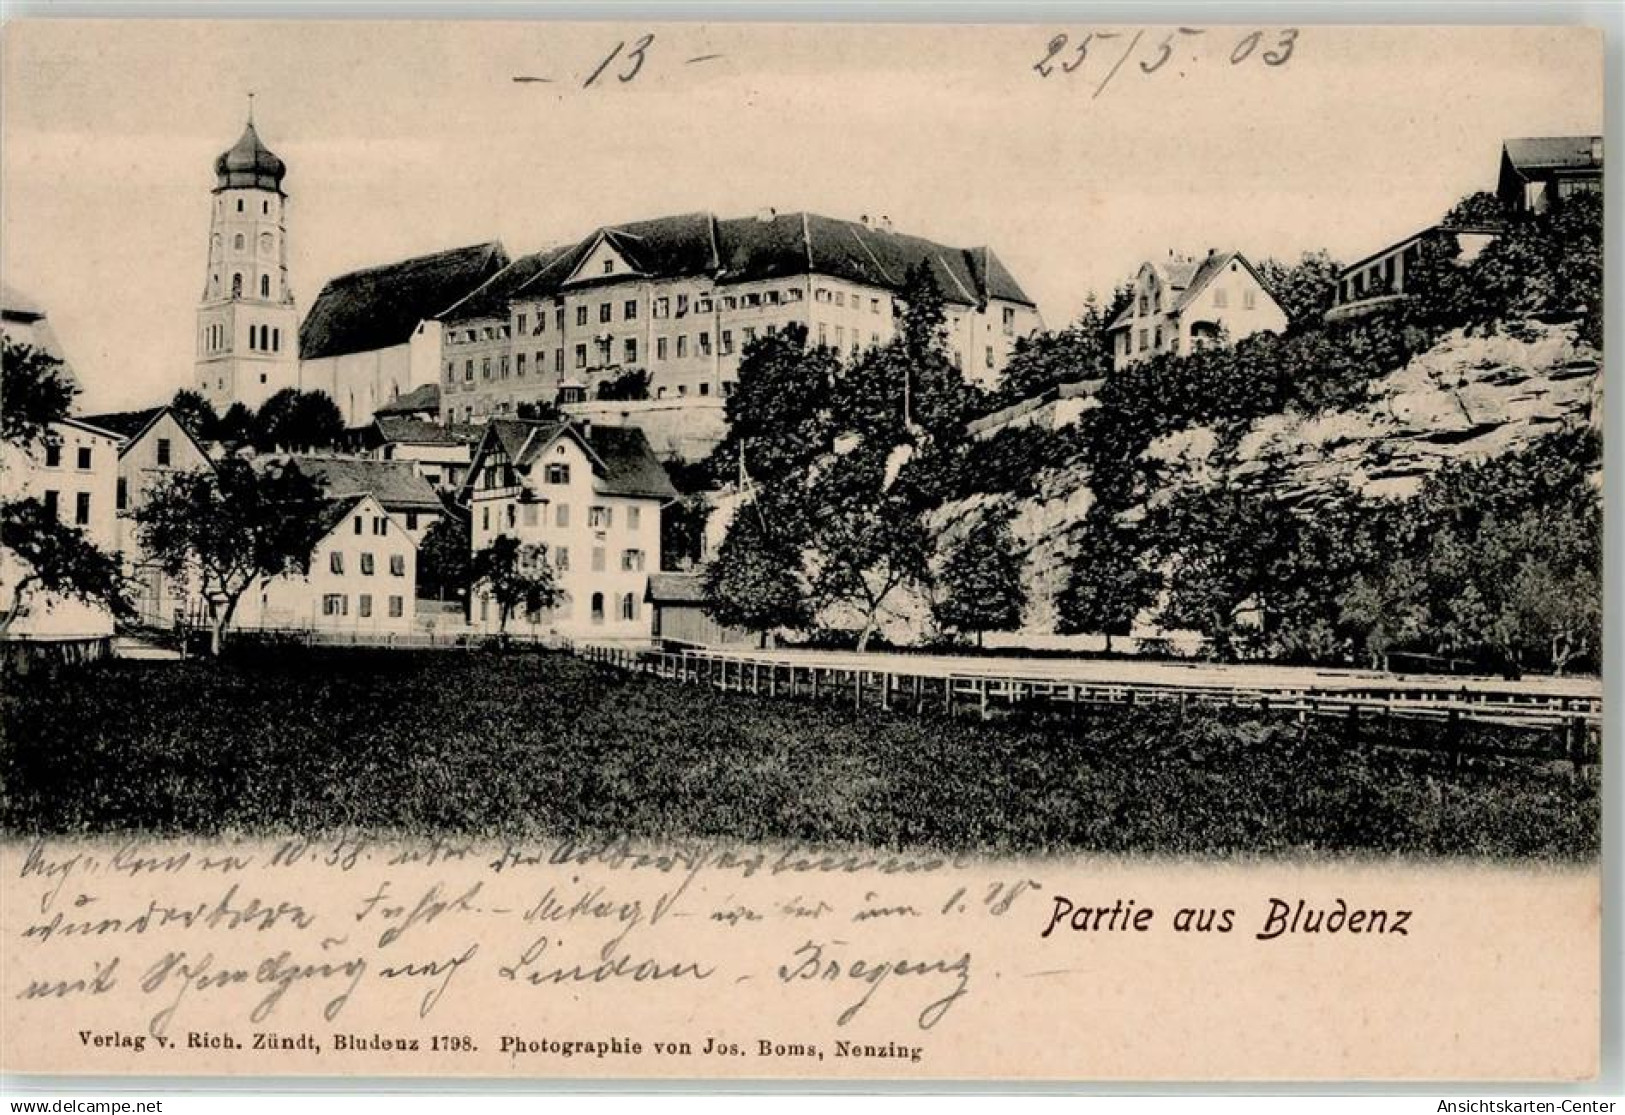 – 13 –
25/5. 03
Angekommen 10.58. über den Arlbergtunnel
wunderbare Fahrt. – Mittags – weiter um 1.18
mit Schnellzug nach Lindau – Bregenz. –
Partie aus Bludenz
Verlag v. Rich. Zündt, Bludenz 1798. Photographie von Jos. Boms, Nenzing
oldthing
Ansichtskarten-Center